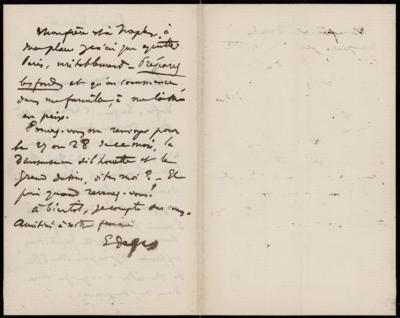 Mon frère est à Naples, à
ma place je n'ai qu'à quitter
Paris, véritablement. Préparez
les fonds et qu'on commence
dans ma famille, à me laisser
en paix.
Pouvez-vous me renvoyer, pour
le 27 ou 28 de ce mois, la
danseuse silhouette et le
grand dessin, dites moi? — Et
puis quand revenez-vous?
à bientôt, je compte sur vous.
Amitiés à votre femme
E Degas